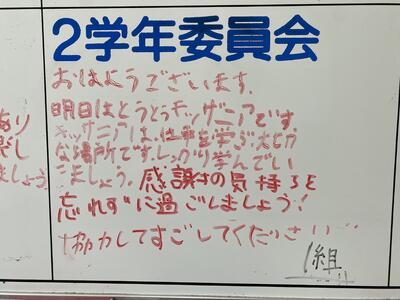 2学年委員会
おはようございます。
明日はとうとうキッザニアです
キッザニアは、仕事を学ぶ大切
な場所です。しっかり学んでい
きましょう。感謝の気持ちを
忘れずに過ごしましょう!
協力してすごしてください
1組